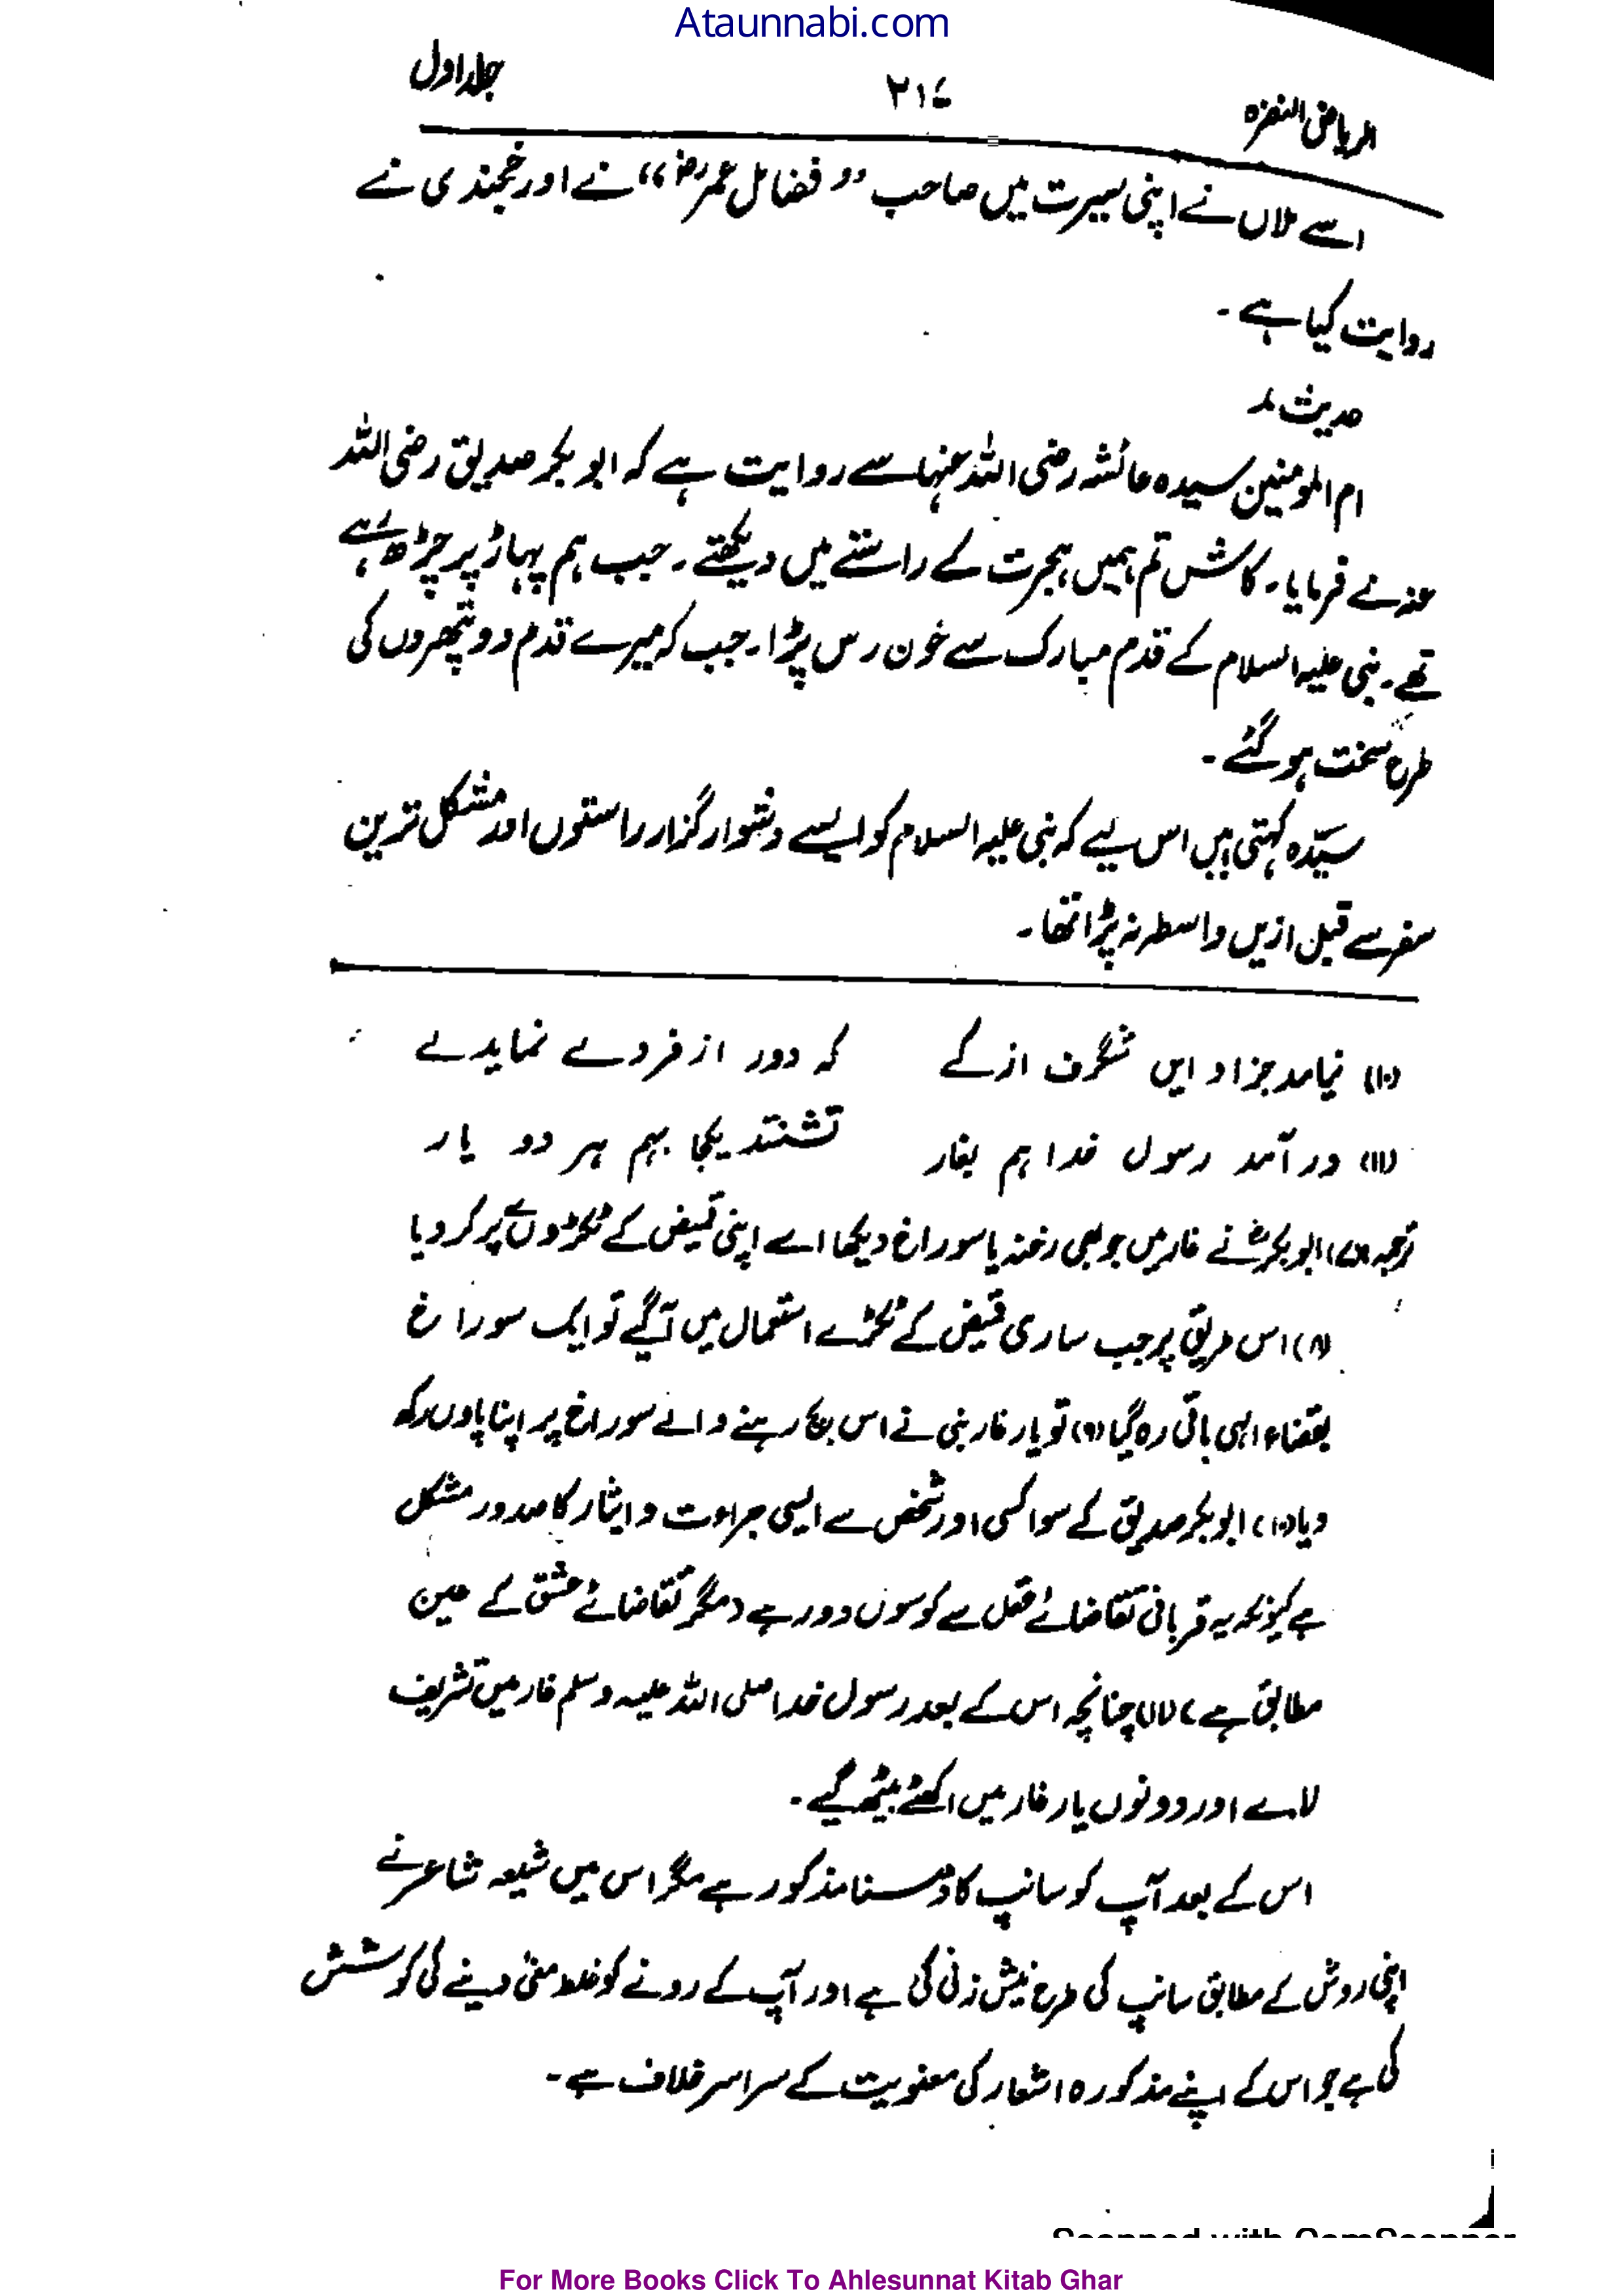 Ataunnabi.com
الریاض النضرہ ۲۱۷ جلد اول
اسے ملاں نے اپنی سیرت میں صاحب ”فضائل عمرؓ“ نے اور خجندی نے
روایت کیا ہے۔
حدیث ۸
ام المومنین سیدہ عائشہ رضی اللہ عنہا سے روایت ہے کہ ابو بکر صدیق رضی اللہ
عنہ نے فرمایا۔ کاش تم ہمیں ہجرت کے راستے میں دیکھتے۔ جب ہم پہاڑ پر چڑھ رہے
تھے۔ نبی علیہ السلام کے قدم مبارک سے خون رس پڑا۔ جب کہ میرے قدم دو پتھروں کی
طرح سخت ہو گئے۔
سیّدہ کہتی ہیں اس لیے کہ نبی علیہ السلام کو ایسے دشوار گزار راستوں اور مشکل ترین
سفر سے قبل ازیں واسطہ نہ پڑا تھا۔
(۱۰) نیامد جزاو ایں شگرف از کے کہ دور از فرو مے نماید لے
(۱۱) در آمد رسول خدا ہم بغار نشستند یکجا بہم ہر دو یار
ترجمہ (۷) ابو بکرؓ نے غار میں جو بھی رخنہ یا سوراخ دیکھا اسے اپنی قمیض کے ٹکڑوں سے پر کر دیا
(۸) اس طریق پر جب ساری قمیض کے ٹکڑے استعمال میں آ گیے تو ایک سوراخ
بقضاء الہی باقی رہ گیا (۹) تو یار غار نبی نے اس بچ رہنے والے سوراخ پر اپنا پاوں رکھ
دیا (۱۰) ابو بکر صدیق کے سوا کسی اور شخص سے ایسی جراءت و ایثار کا صدور مشکل
ہے کیونکہ یہ قربانی تقاضائے عقل سے کوسوں دور ہے (مگر تقاضائے عشق کے عین
مطابق ہے) (۱۱) چنانچہ اس کے بعد رسول خدا صلی اللہ علیہ وسلم غار میں تشریف
لاے اور دونوں یار غار میں اکھٹے بیٹھ گیے۔
اس کے بعد آپ کو سانپ کا ڈسنا مذکور ہے مگر اس میں شیعہ شاعر نے
اپنی روش کے مطابق سانپ کی طرح نیش زنی کی ہے اور آپ کے رونے کو غلط معنیٰ دینے کی کوشش
کی ہے جو اس کے اپنے مذکورہ اشعار کی معنویت کے سراسر خلاف ہے۔
Scanned with CamScanner
For More Books Click To Ahlesunnat Kitab Ghar